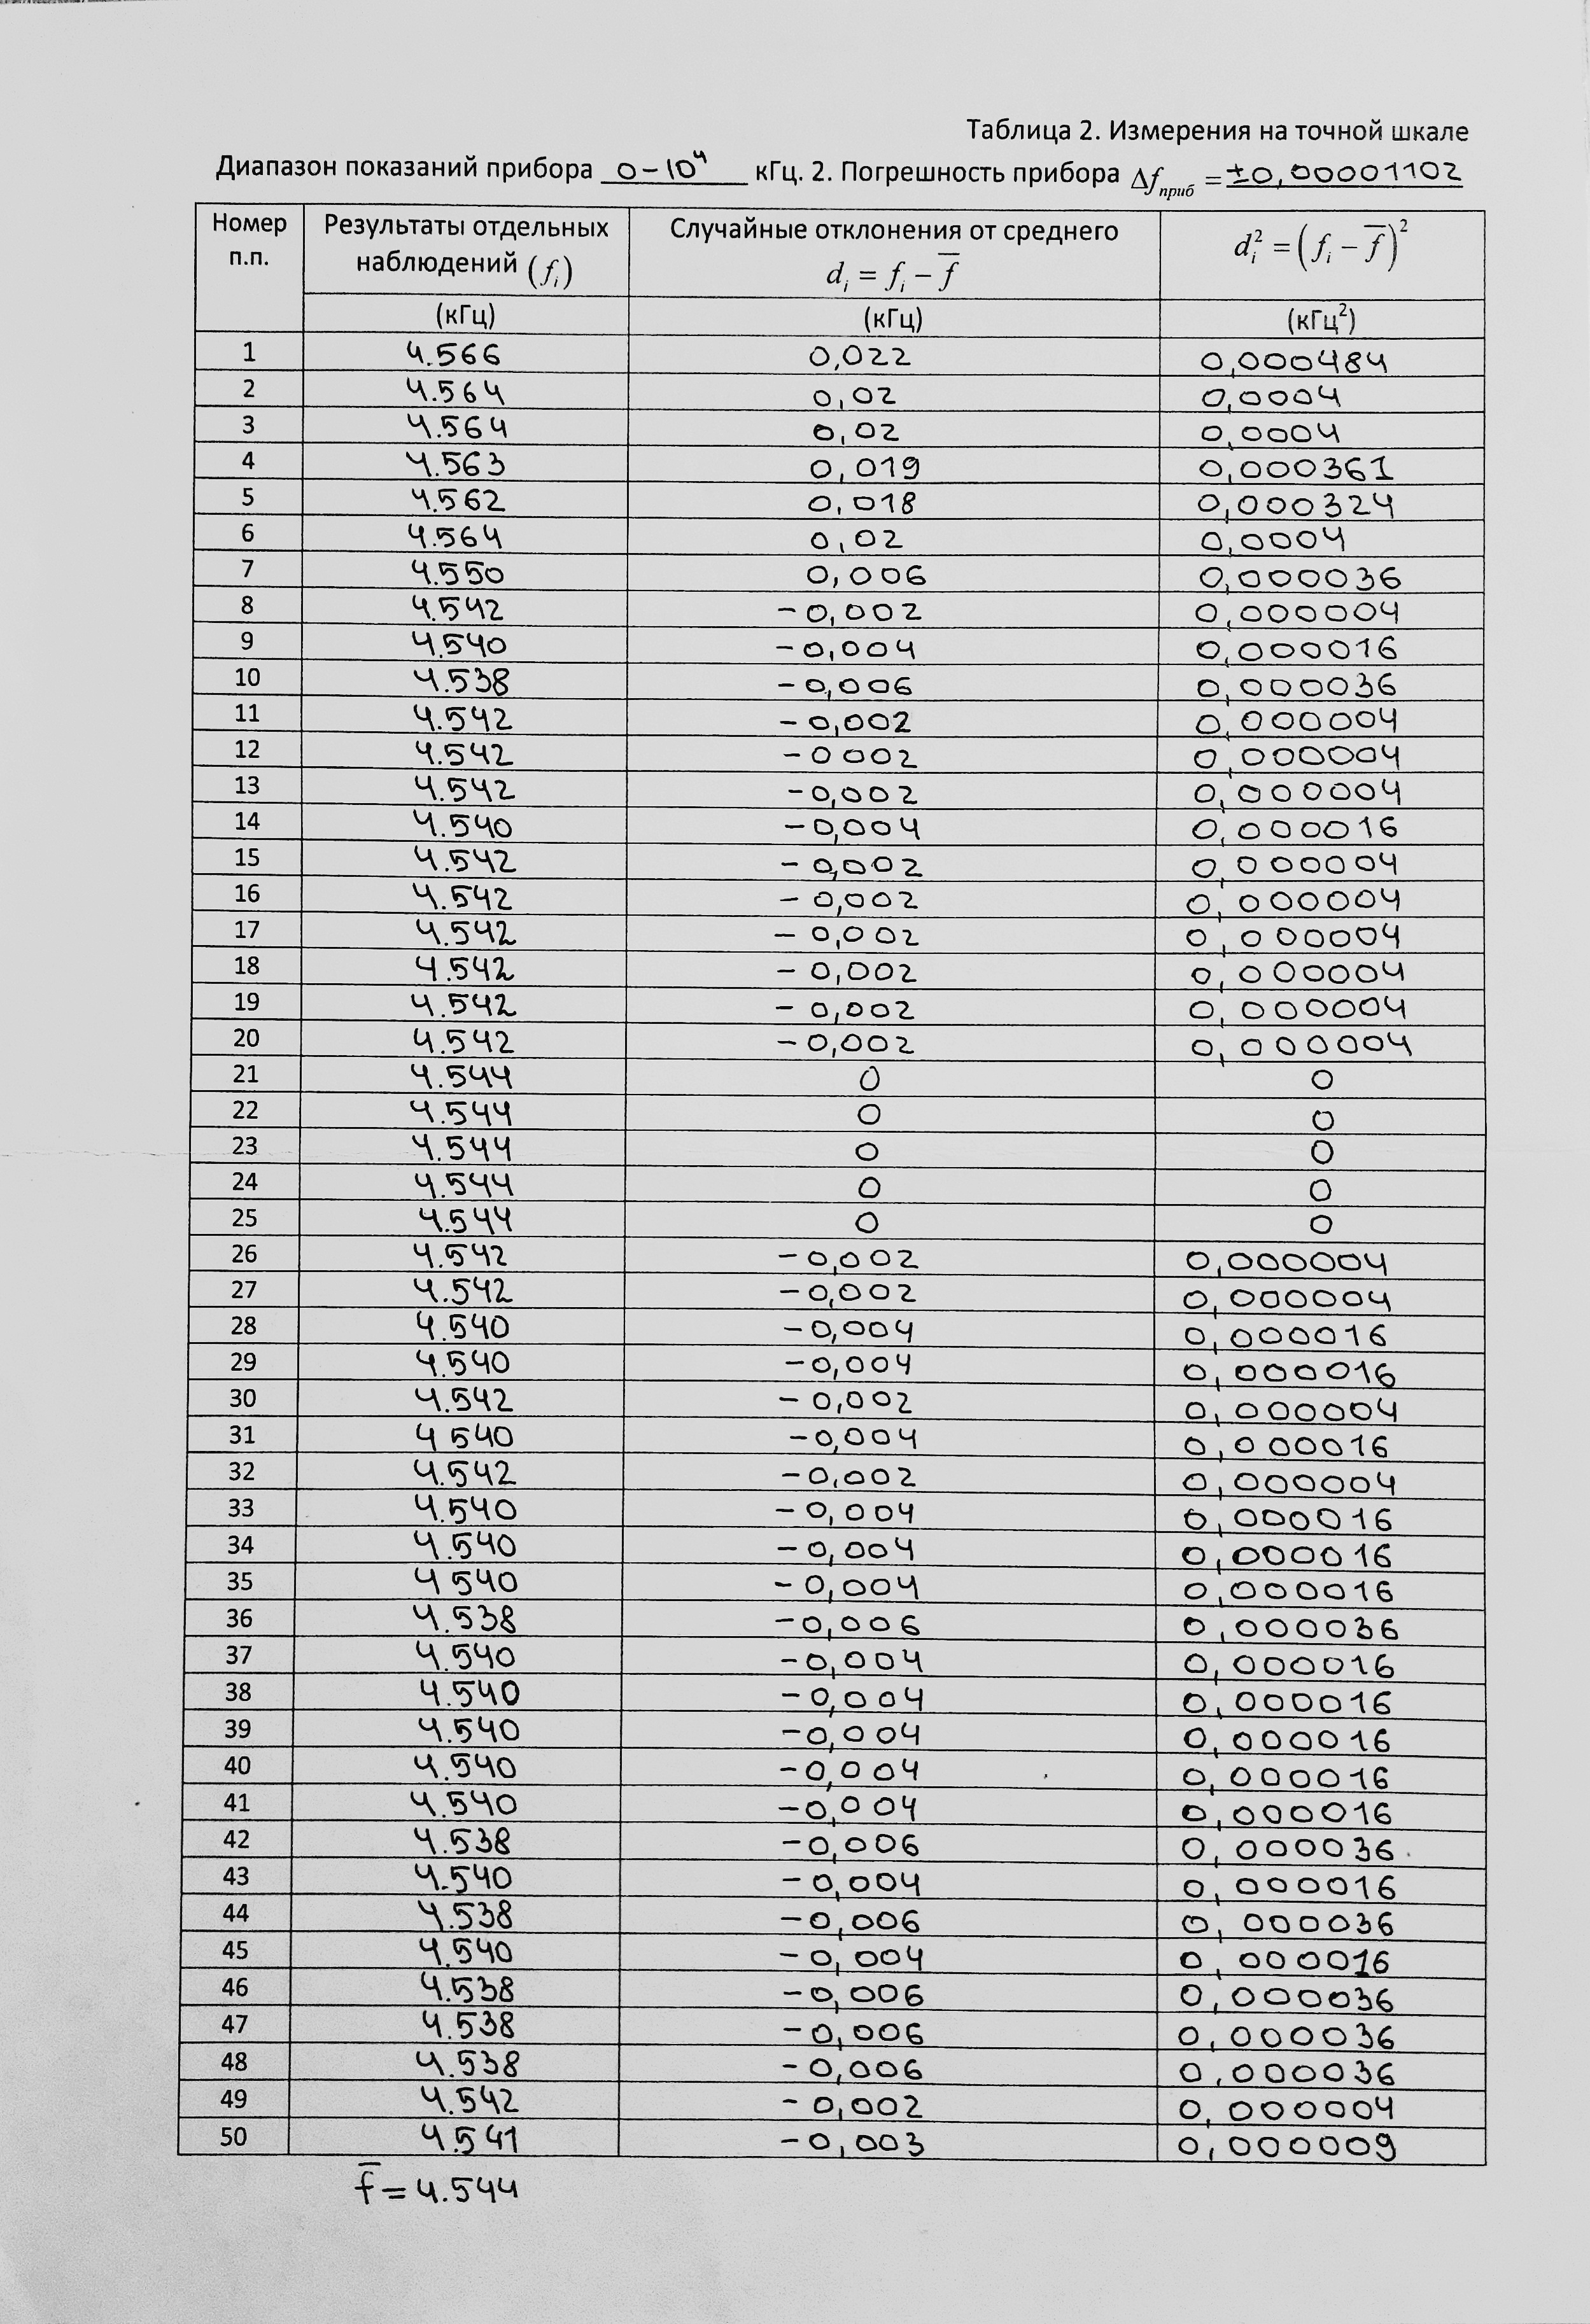 Таблица 2. Измерения на точной шкале
Диапазон показаний прибора 0-10⁴ кГц. 2. Погрешность прибора Δfприб = ±0,00001102
Номер п.п. Результаты отдельных наблюдений (fi) Случайные отклонения от среднего di = fi − f̅ di² = (fi − f̅)²
(кГц) (кГц) (кГц²)
1 4.566 0,022 0,000484
2 4.564 0,02 0,0004
3 4.564 0,02 0,0004
4 4.563 0,019 0,000361
5 4.562 0,018 0,000324
6 4.564 0,02 0,0004
7 4.550 0,006 0,000036
8 4.542 -0,002 0,000004
9 4.540 -0,004 0,000016
10 4.538 -0,006 0,000036
11 4.542 -0,002 0,000004
12 4.542 -0 002 0,000004
13 4.542 -0,002 0,000004
14 4.540 -0,004 0,000016
15 4.542 -0,002 0,000004
16 4.542 -0,002 0,000004
17 4.542 -0,002 0,000004
18 4.542 -0,002 0,000004
19 4.542 -0,002 0,000004
20 4.542 -0,002 0,000004
21 4.544 0 0
22 4.544 0 0
23 4.544 0 0
24 4.544 0 0
25 4.544 0 0
26 4.542 -0,002 0,000004
27 4.542 -0,002 0,000004
28 4.540 -0,004 0,000016
29 4.540 -0,004 0,000016
30 4.542 -0,002 0,000004
31 4 540 -0,004 0,000016
32 4.542 -0,002 0,000004
33 4.540 -0,004 0,000016
34 4.540 -0,004 0,000016
35 4 540 -0,004 0,000016
36 4.538 -0,006 0,000036
37 4.540 -0,004 0,000016
38 4.540 -0,004 0,000016
39 4.540 -0,004 0,000016
40 4.540 -0,004 0,000016
41 4.540 -0,004 0,000016
42 4.538 -0,006 0,000036
43 4.540 -0,004 0,000016
44 4.538 -0,006 0,000036
45 4.540 -0,004 0,000016
46 4.538 -0,006 0,000036
47 4.538 -0,006 0,000036
48 4.538 -0,006 0,000036
49 4.542 -0,002 0,000004
50 4.541 -0,003 0,000009
f̅ = 4.544